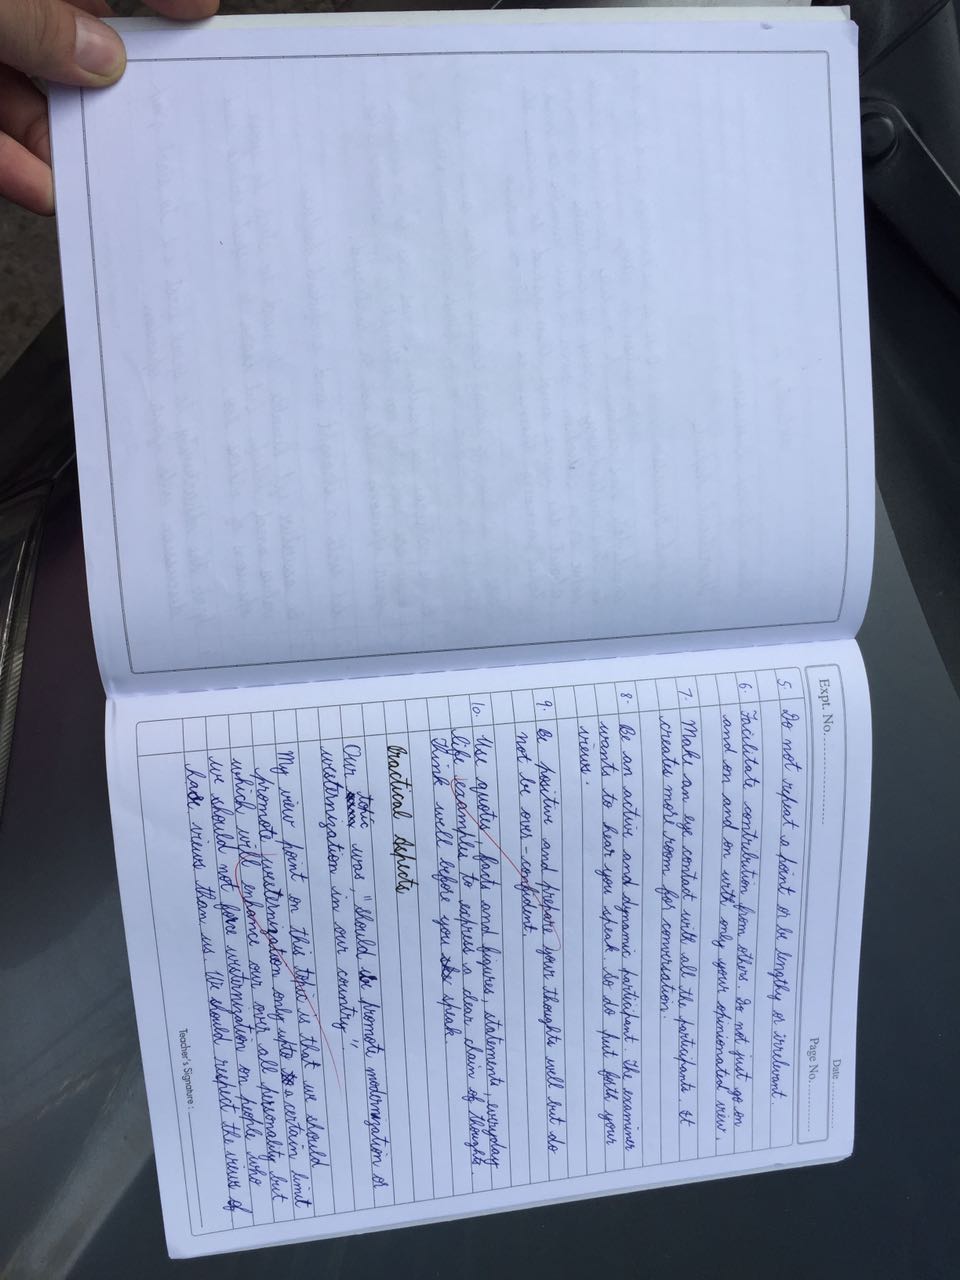 Date ............
Expt. No. ......................
Page No. ............
5. Do not repeat a point or be lengthy or irrelevant.
6. Facilitate contribution from others. Do not just go on
and on and on with only your opinionated view.
7. Make an eye contact with all the participants. It
creates more room for conversation.
8. Be an active and dynamic participant. The examiner
wants to hear you speak. So do put forth your
views.
9. Be positive and prepare your thoughts well but do
not be over-confident.
10. Use quotes, facts and figures, statements, everyday
life examples to express a clear chain of thoughts.
Think well before you speak.
Practical Aspects
Our topic was, "Should we promote modernization or
westernization in our country".
My view point on this topic is that we should
promote westernization only upto a certain limit
which will enhance our over all personality but
we should not force westernization on people who
have views than us. We should respect the views of
Teacher's Signature : ______________